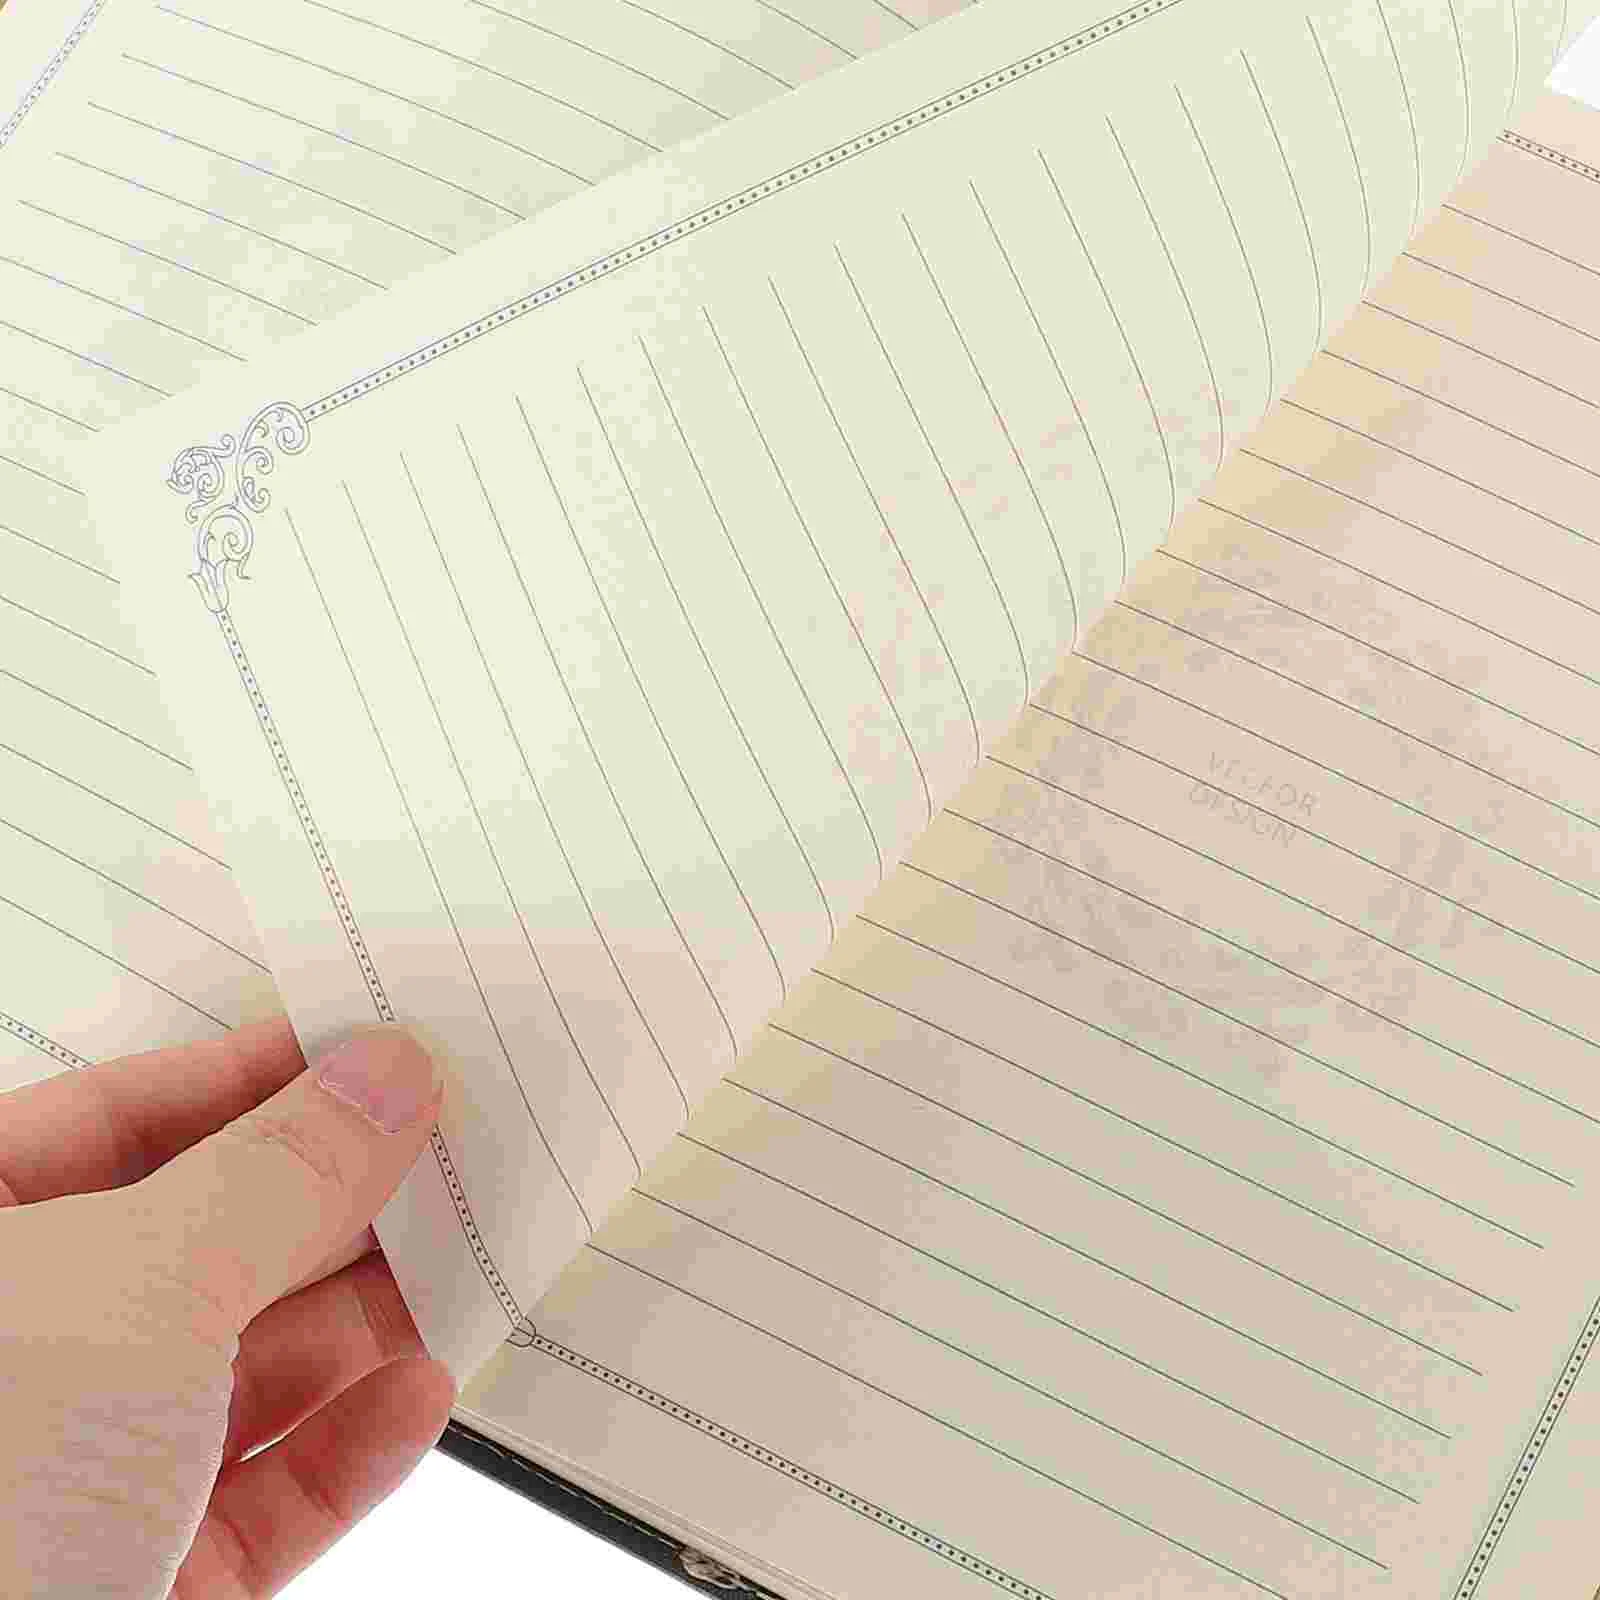 VECFOR
DESIGN